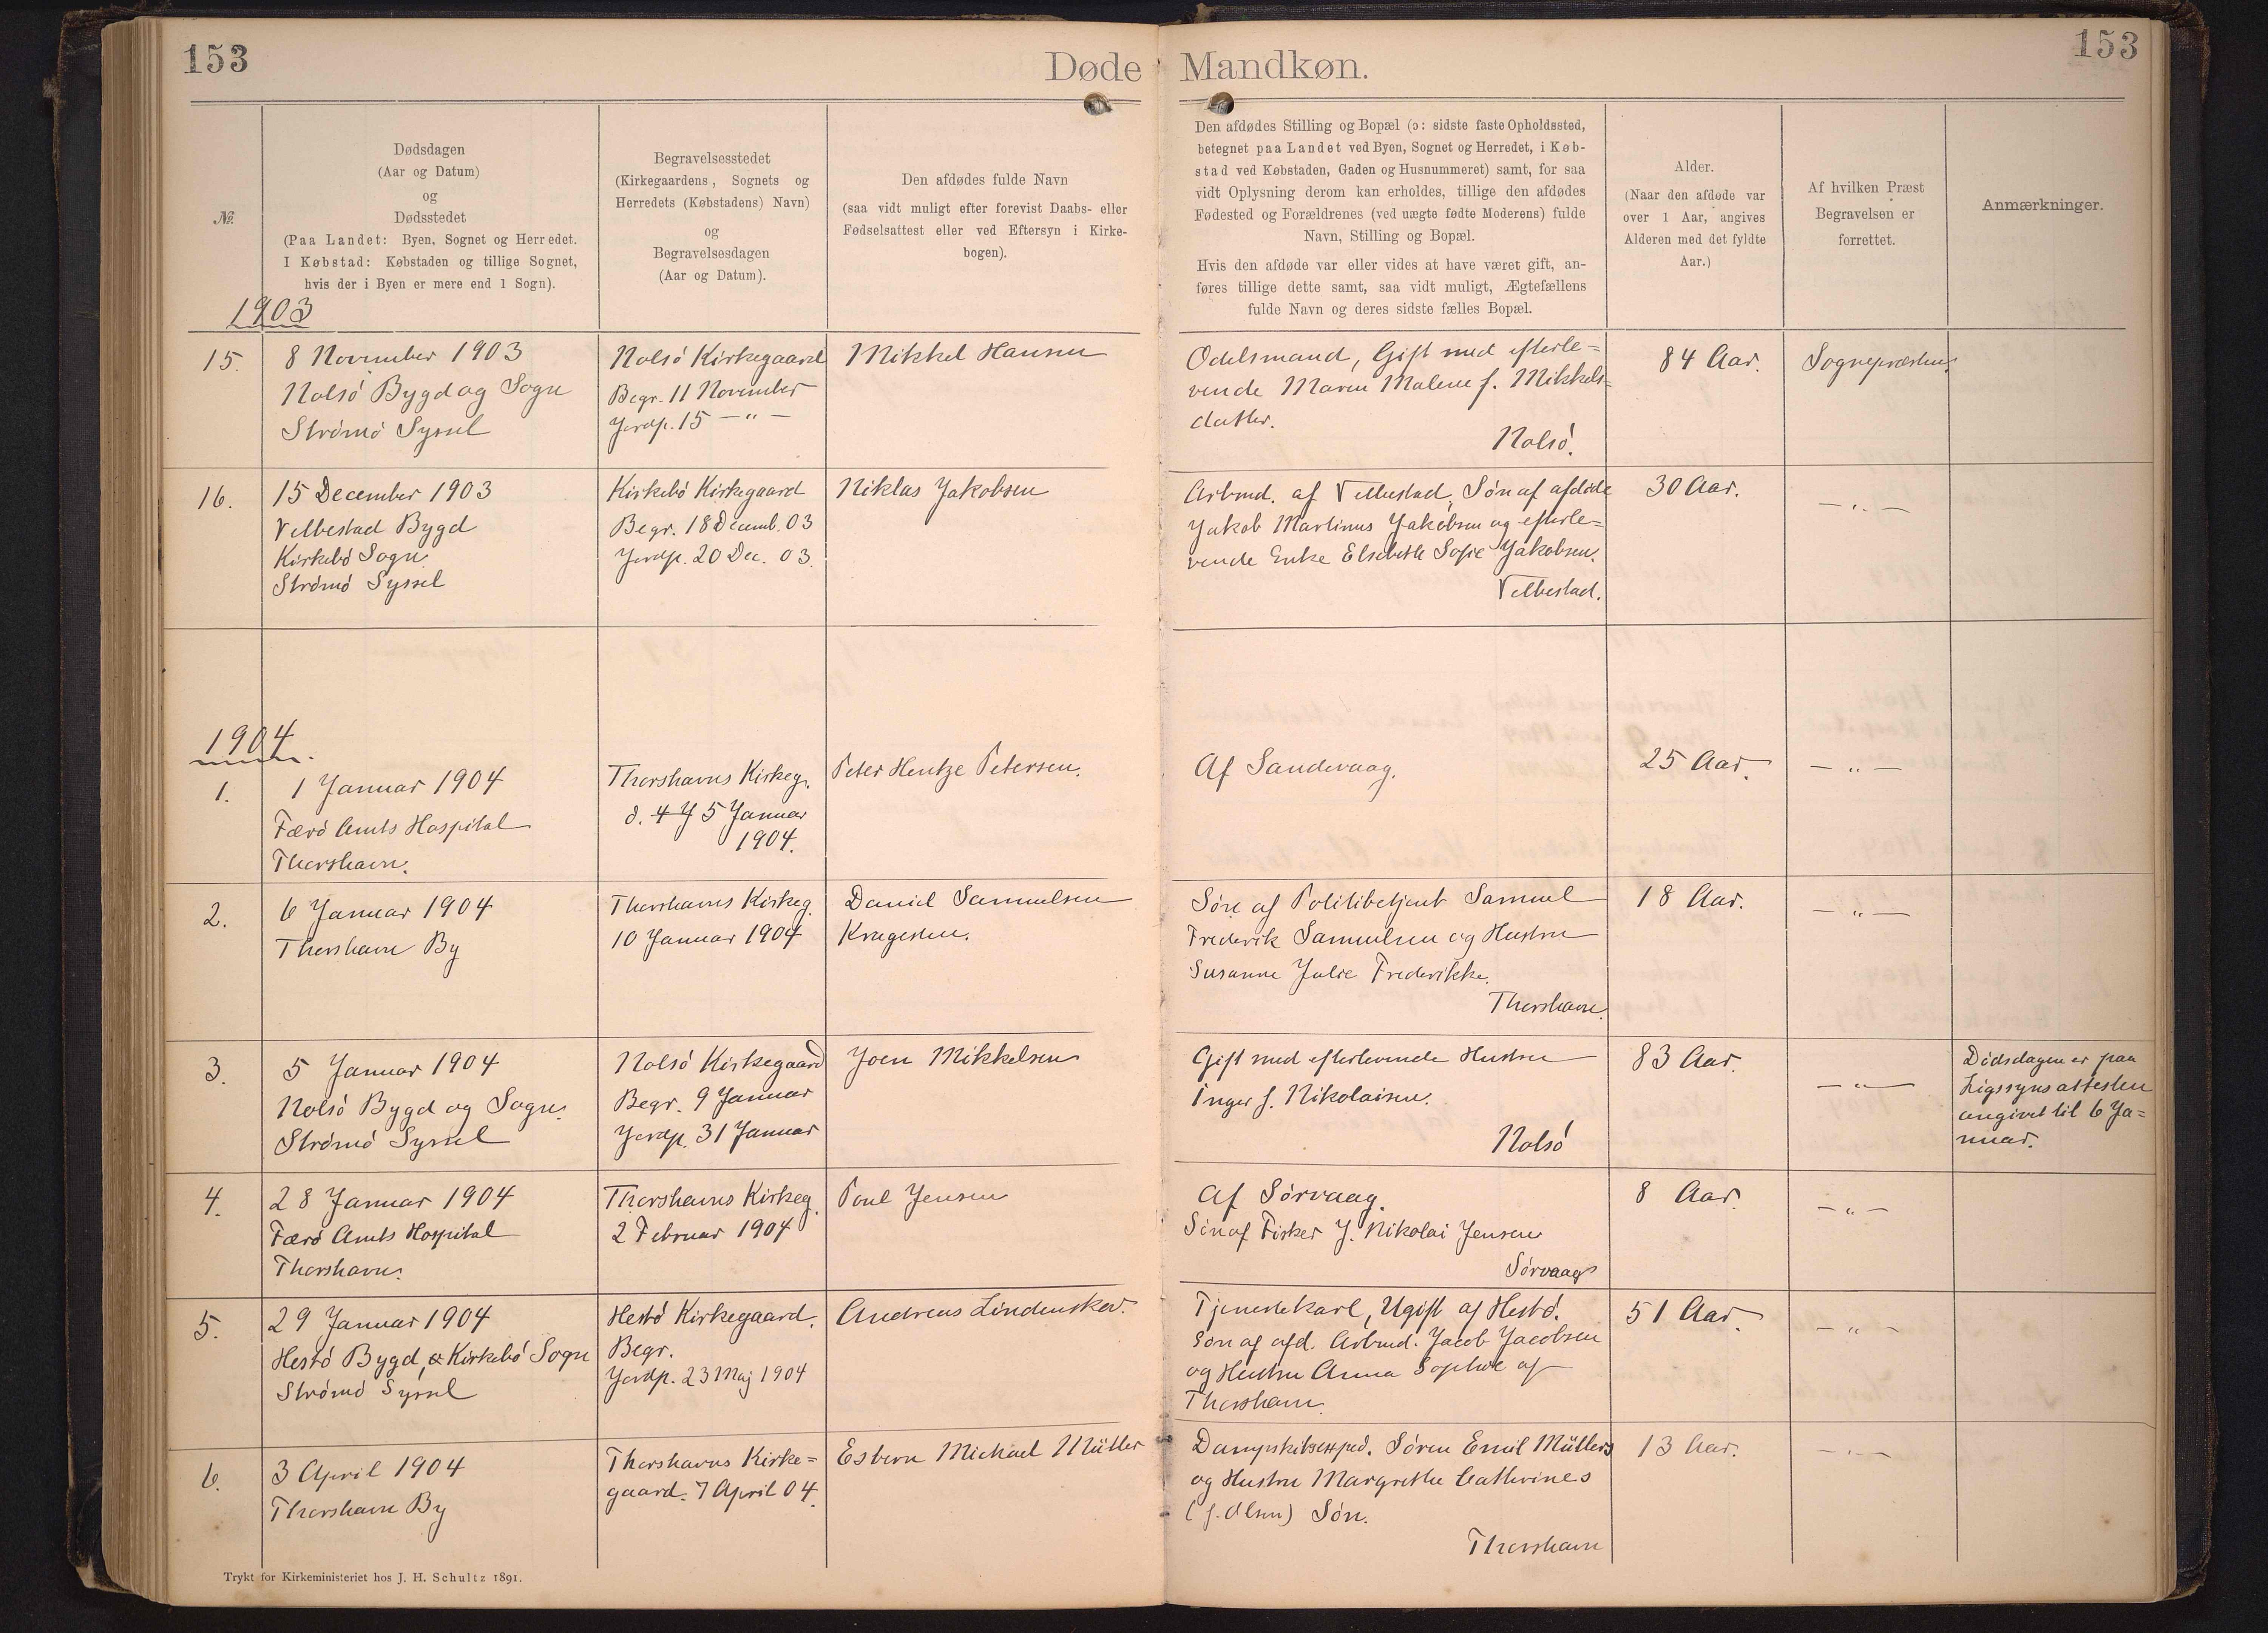 153
Døde Mandkøn.
153
№
Dødsdagen
(Aar og Datum)
og
Dødsstedet
(Paa Landet: Byen, Sognet og Herredet.
I Købstad: Købstaden og tillige Sognet,
hvis der i Byen er mere end 1 Sogn).
Begravelsesstedet
(Kirkegaardens, Sognets og
Herredets (Købstadens) Navn)
og
Begravelsesdagen
(Aar og Datum).
Den afdødes fulde Navn
(saa vidt muligt efter forevist Daabs- eller
Fødselsattest eller ved Eftersyn i Kirke-
bogen).
Den afdødes Stilling og Bopæl (ɔ: sidste faste Opholdssted,
betegnet paa Landet ved Byen, Sognet og Herredet, i Køb-
stad ved Købstaden, Gaden og Husnummeret) samt, for saa
vidt Oplysning derom kan erholdes, tillige den afdødes
Fødested og Forældrenes (ved uægte fødte Moderens) fulde
Navn, Stilling og Bopæl.
Hvis den afdøde var eller vides at have været gift, an-
føres tillige dette samt, saa vidt muligt, Ægtefællens
fulde Navn og deres sidste fælles Bopæl.
Alder.
(Naar den afdøde var
over 1 Aar, angives
Alderen med det fyldte
Aar.)
Af hvilken Præst
Begravelsen er
forrettet.
Anmærkninger.
1903
15.
8 November 1903
Nolsö Bygd og Sogn
Strömö Syssel
Nolsö Kirkegaard
Begr. 11 November
Jordp. 15 — " —
Mikkel Hansen
Odelsmand, Gift med efterle=
vende Maren Malene f. Mikkels=
datter.
Nolsö.
84 Aar.
Sognepræsten.
16.
15 December 1903
Velbestad Bygd
Kirkebö Sogn.
Strömö Syssel
Kirkebö Kirkegaard
Begr. 18 Decemb. 03
Jordp. 20 Dec. 03.
Niklas Jakobsen
Arbmd. af Velbestad, Sön af afdöde
Jakob Martinus Jakobsen og efterle=
vende Enke Elsebeth Sofie Jakobsen.
Velbestad.
30 Aar.
— " —
1904
1.
1 Januar 1904
Færö Amts Hospital
Thorshavn.
Thorshavns Kirkeg.
d. 4 J 5 Januar
1904.
Peter Hentze Petersen.
Af Sandevaag.
25 Aar.
— " —
2.
6 Januar 1904
Thorshavn By
Thorshavns Kirkeg.
10 Januar 1904
Daniel Samuelsen
Kragesten.
Sön af Politibetjent Samuel
Frederik Samuelsen og Hustru
Susanne Julie Frederikke.
Thorshavn.
18 Aar.
— " —
3.
5 Januar 1904
Nolsö Bygd og Sogn.
Strömö Syssel
Nolsö Kirkegaard
Begr. 9 Januar
Jordp. 31 Januar
Joen Mikkelsen
Gift med efterlevende Hustru
Inger f. Nikolaisen.
Nolsö
83 Aar.
— " —
Dödsdagen er paa
Ligssynsattesten
angivet til 6 Ja=
nuar.
4.
28 Januar 1904
Færö Amts Hospital
Thorshavn.
Thorshavns Kirkeg.
2 Februar 1904
Poul Jensen
Af Sörvaag.
Sön af Fisker J. Nikolai Jensen
Sörvaag
8 Aar.
— " —
5.
29 Januar 1904
Hestö Bygd, & Kirkebö Sogn
Strömö Syssel
Hestö Kirkegaard.
Begr.
Jordp. 23 Maj 1904
Andreas Lindenskov.
Tjenestekarl, Ugift af Hestö.
Sön af afd. Arbmd. Jacob Jacobsen
og Hustru Anna Sophie af
Thorshavn.
51 Aar.
— " —
6.
3 April 1904
Thorshavn By
Thorshavns Kirke=
gaard. 7 April 04.
Esbern Michael Müller
Dampskibsexped. Sören Emil Müllers
og Hustru Margrethe Cathrines
(f. Olsen) Sön.
Thorshavn
13 Aar.
— " —
Trykt for Kirkeministeriet hos J. H. Schultz 1891.